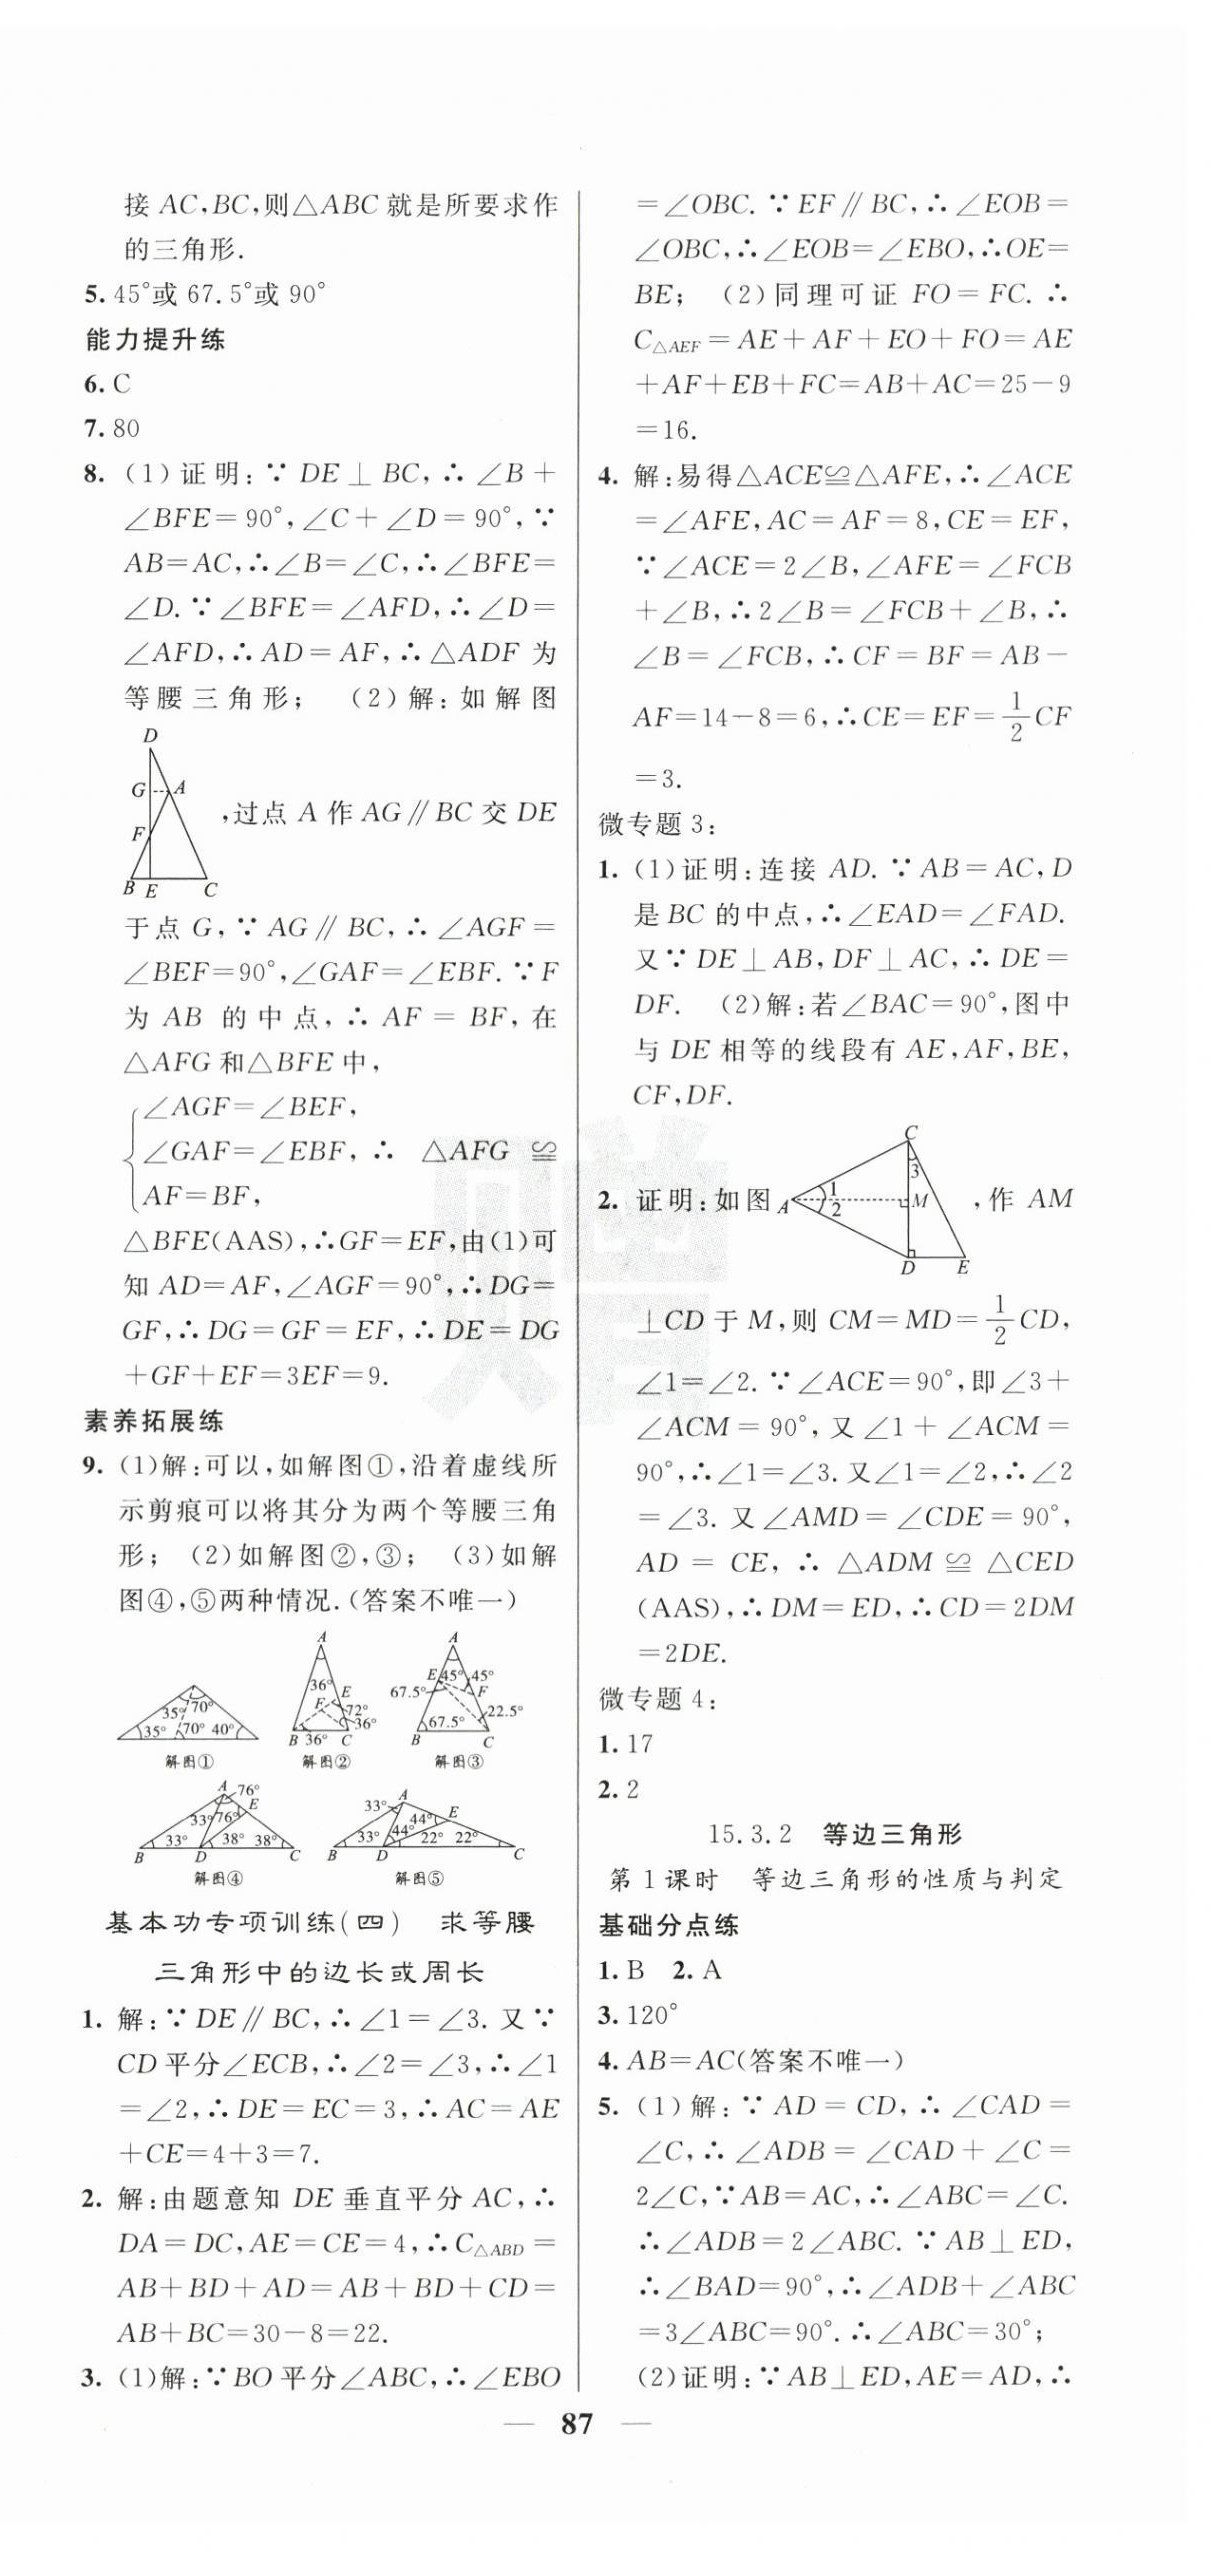 接 AC,BC,则△ABC 就是所要求作
的三角形.
5. 45°或 67.5°或 90°
能力提升练
6. C
7. 80
8. (1)证明:∵ DE⊥BC,∴∠B+
∠BFE=90°,∠C+∠D=90°,∵
AB=AC,∴∠B=∠C,∴∠BFE=
∠D.∵∠BFE=∠AFD,∴∠D=
∠AFD,∴AD=AF,∴△ADF 为
等腰三角形; (2)解:如解图
D
G A
F
B E C
,过点 A 作 AG∥BC 交 DE
于点 G,∵AG∥BC,∴∠AGF=
∠BEF=90°,∠GAF=∠EBF.∵F
为 AB 的中点,∴AF=BF,在
△AFG 和△BFE 中,
∠AGF=∠BEF,
∠GAF=∠EBF,∴ △AFG ≌
AF=BF,
△BFE(AAS),∴GF=EF,由(1)可
知 AD=AF,∠AGF=90°,∴DG=
GF,∴DG=GF=EF,∴DE=DG
+GF+EF=3EF=9.
素养拓展练
9. (1)解:可以,如解图①,沿着虚线所
示剪痕可以将其分为两个等腰三角
形; (2)如解图②,③; (3)如解
图④,⑤两种情况.(答案不唯一)
35° 70°
35° 70° 40°
解图①
A
36°
E
F 72°
36°
B 36° C
解图②
A
E 45° 45°
67.5° F
22.5°
67.5°
B C
解图③
A 76°
E
33° 76°
33° 38° 38°
B D C
解图④
A
33°
44° E
33° 44° 22° 22°
B D C
解图⑤
基本功专项训练(四) 求等腰
三角形中的边长或周长
1. 解:∵DE∥BC,∴∠1=∠3.又∵
CD 平分∠ECB,∴∠2=∠3,∴∠1
=∠2,∴DE=EC=3,∴AC=AE
+CE=4+3=7.
2. 解:由题意知 DE 垂直平分 AC,∴
DA=DC,AE=CE=4,∴C△ABD=
AB+BD+AD=AB+BD+CD=
AB+BC=30-8=22.
3. (1)解:∵BO 平分∠ABC,∴∠EBO
=∠OBC.∵EF∥BC,∴∠EOB=
∠OBC,∴∠EOB=∠EBO,∴OE=
BE; (2)同理可证 FO=FC.∴
C△AEF=AE+AF+EO+FO=AE
+AF+EB+FC=AB+AC=25-9
=16.
4. 解:易得△ACE≌△AFE,∴∠ACE
=∠AFE,AC=AF=8,CE=EF,
∵∠ACE=2∠B,∠AFE=∠FCB
+∠B,∴2∠B=∠FCB+∠B,∴
∠B=∠FCB,∴CF=BF=AB-
AF=14-8=6,∴CE=EF=1/2 CF
=3.
微专题 3:
1. (1)证明:连接 AD.∵AB=AC,D
是 BC 的中点,∴∠EAD=∠FAD.
又∵DE⊥AB,DF⊥AC,∴DE=
DF. (2)解:若∠BAC=90°,图中
与 DE 相等的线段有 AE,AF,BE,
CF,DF.
C
3
1
A M
2
D E
2. 证明:如图 ,作 AM
⊥CD 于 M,则 CM=MD=1/2 CD,
∠1=∠2.∵∠ACE=90°,即∠3+
∠ACM=90°,又∠1+∠ACM=
90°,∴∠1=∠3.又∠1=∠2,∴∠2
=∠3.又∠AMD=∠CDE=90°,
AD=CE,∴△ADM≌△CED
(AAS),∴DM=ED,∴CD=2DM
=2DE.
微专题 4:
1. 17
2. 2
15.3.2 等边三角形
第 1 课时 等边三角形的性质与判定
基础分点练
1. B 2. A
3. 120°
4. AB=AC(答案不唯一)
5. (1)解:∵AD=CD,∴∠CAD=
∠C,∴∠ADB=∠CAD+∠C=
2∠C,∵AB=AC,∴∠ABC=∠C.
∴∠ADB=2∠ABC.∵AB⊥ED,
∴∠BAD=90°,∴∠ADB+∠ABC
=3∠ABC=90°.∴∠ABC=30°;
(2)证明:∵AB⊥ED,AE=AD,∴
— 87 —